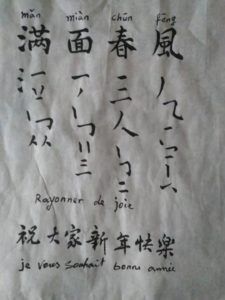 mǎn miàn chūn fēng
满 面 春 風
Rayonner de joie
祝大家新年快樂
je vous souhait bonne année